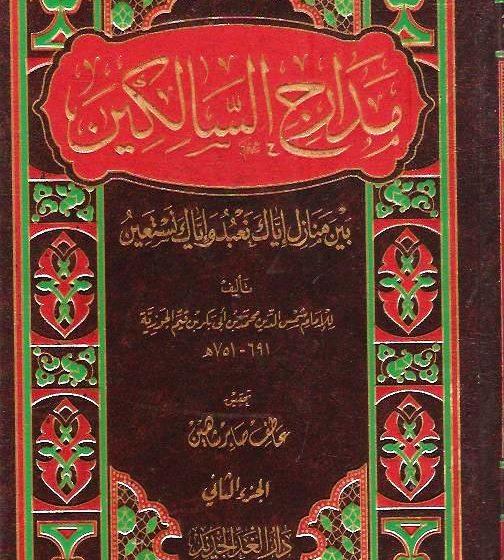 مَدَارِجُ السَّالِكِين
بَيْنَ مَنَازِلِ إِيَّاكَ نَعْبُدُ وَإِيَّاكَ نَسْتَعِينُ
تأليف
للإمام شمس الدين محمد بن أبي بكر بن قيم الجوزية
٦٩١ - ٧٥١ هـ
تحقيق
عاطف صابر شاهين
الجزء الثاني
دار الغد الجديد